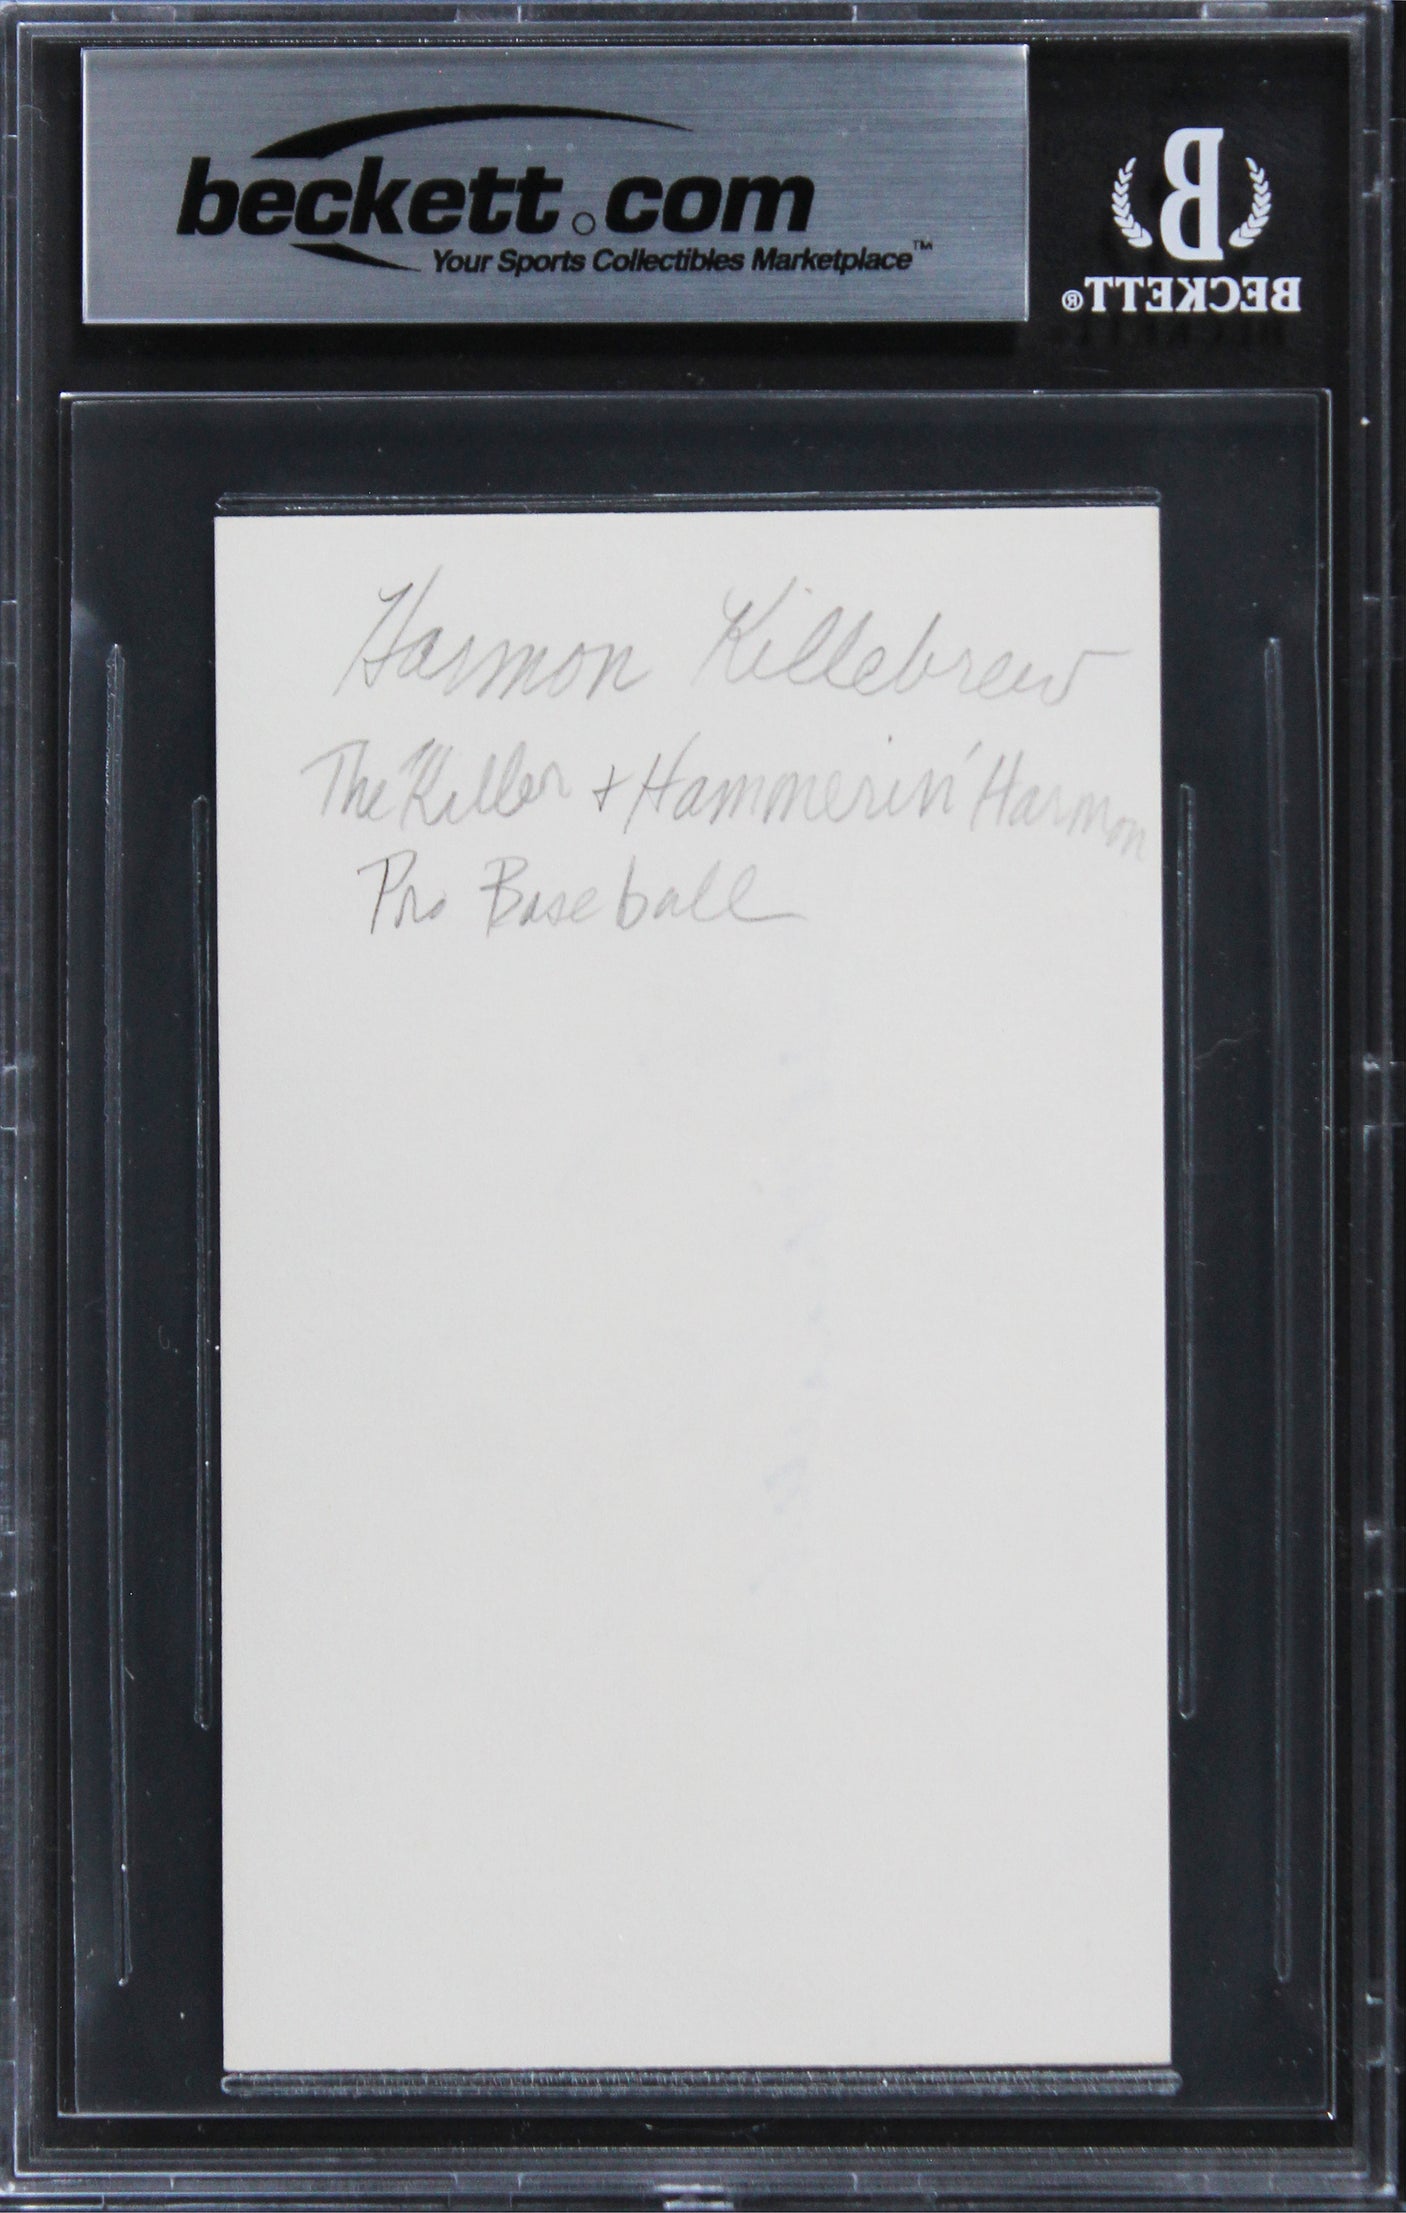 beckett.com
Your Sports Collectibles Marketplace™
B
BECKETT®
Harmon Killebrew
The Killer + Hammerin' Harmon
Pro Baseball